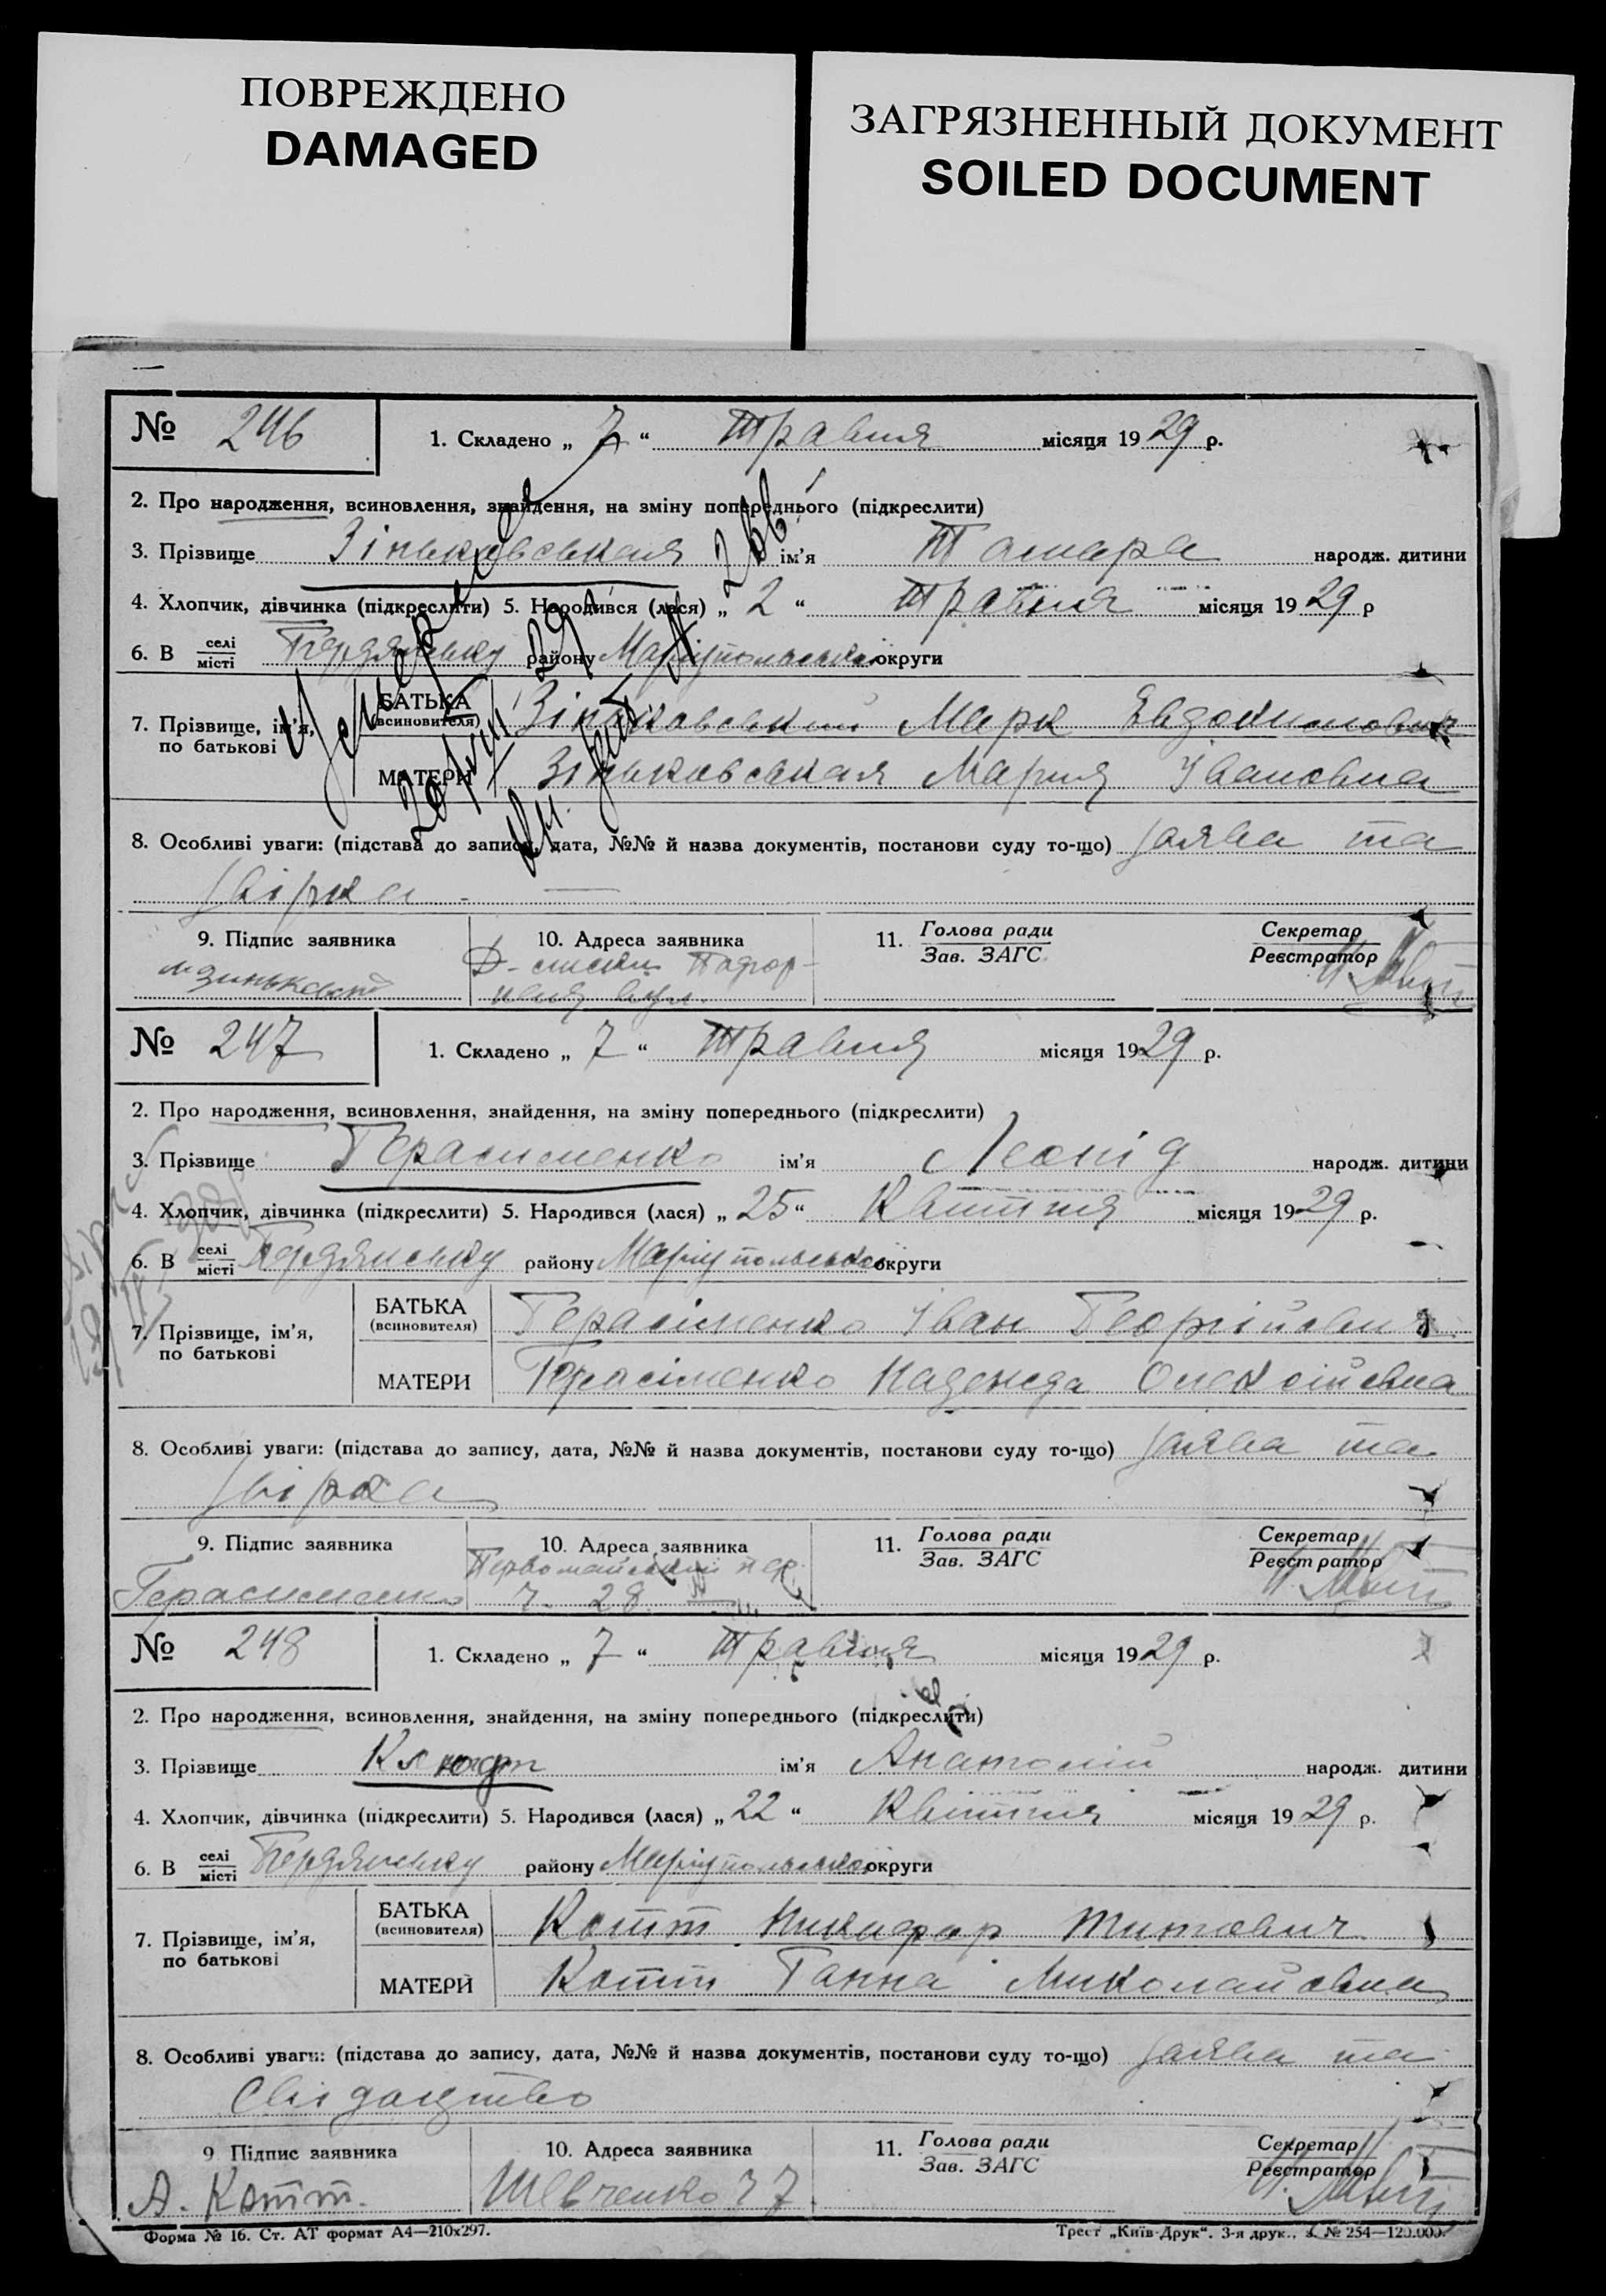 ПОВРЕЖДЕНО
DAMAGED
ЗАГРЯЗНЕННЫЙ ДОКУМЕНТ
SOILED DOCUMENT
№ 246 1. Складено „ 7 “ Травня місяця 1929 р.
2. Про народження, всиновлення, знайдення, на зміну попереднього (підкреслити)
3. Прізвище Зіньковськая ім'я Тамара народж. дитини
4. Хлопчик, дівчинка (підкреслити) 5. Народився (лася) „ 2 “ Травня місяця 1929 р
6. В селі місті Бердянську району Маріупольської округи
7. Прізвище, ім'я, по батькові
БАТЬКА (всиновителя) Зіньковський Марк Евдокимович
МАТЕРИ Зіньковськая Мария Івановна
8. Особливі уваги: (підстава до запису, дата, №№ й назва документів, постанови суду то-що) заява та
звірка
9. Підпис заявника 10. Адреса заявника 11. Голова ради Зав. ЗАГС Секретар Реєстратор
№ 247 1. Складено „ 7 “ Травня місяця 1929 р.
2. Про народження, всиновлення, знайдення, на зміну попереднього (підкреслити)
3. Прізвище Герасименко ім'я Леонід народж. дитини
4. Хлопчик, дівчинка (підкреслити) 5. Народився (лася) „ 25 “ Квітня місяця 1929 р.
6. В селі місті Бердянську району Маріупольської округи
7. Прізвище, ім'я, по батькові
БАТЬКА (всиновителя) Герасіменко Іван Георгійович
МАТЕРИ Герасіменко Надежда Олексіївна
8. Особливі уваги: (підстава до запису, дата, №№ й назва документів, постанови суду то-що) заява та
звірка
9. Підпис заявника 10. Адреса заявника 11. Голова ради Зав. ЗАГС Секретар Реєстратор
Герасименко Первомайський пер.
ч. 28
№ 248 1. Складено „ 7 “ Травня місяця 1929 р.
2. Про народження, всиновлення, знайдення, на зміну попереднього (підкреслити)
3. Прізвище ім'я Анатолій народж. дитини
4. Хлопчик, дівчинка (підкреслити) 5. Народився (лася) „ 22 “ Квітня місяця 1929 р.
6. В селі місті Бердянську району Маріупольської округи
7. Прізвище, ім'я, по батькові
БАТЬКА (всиновителя) Котт Никифор Титович
МАТЕРИ Котт Ганна Миколаївна
8. Особливі уваги: (підстава до запису, дата, №№ й назва документів, постанови суду то-що) заява та
9 Підпис заявника 10. Адреса заявника 11. Голова ради Зав. ЗАГС Секретар Реєстратор
А. Котт. Шевченко 77
Форма № 16. Ст. АТ формат А4—210х297. Трест „Київ-Друк“. 3-я друк., з. № 254—120.000.